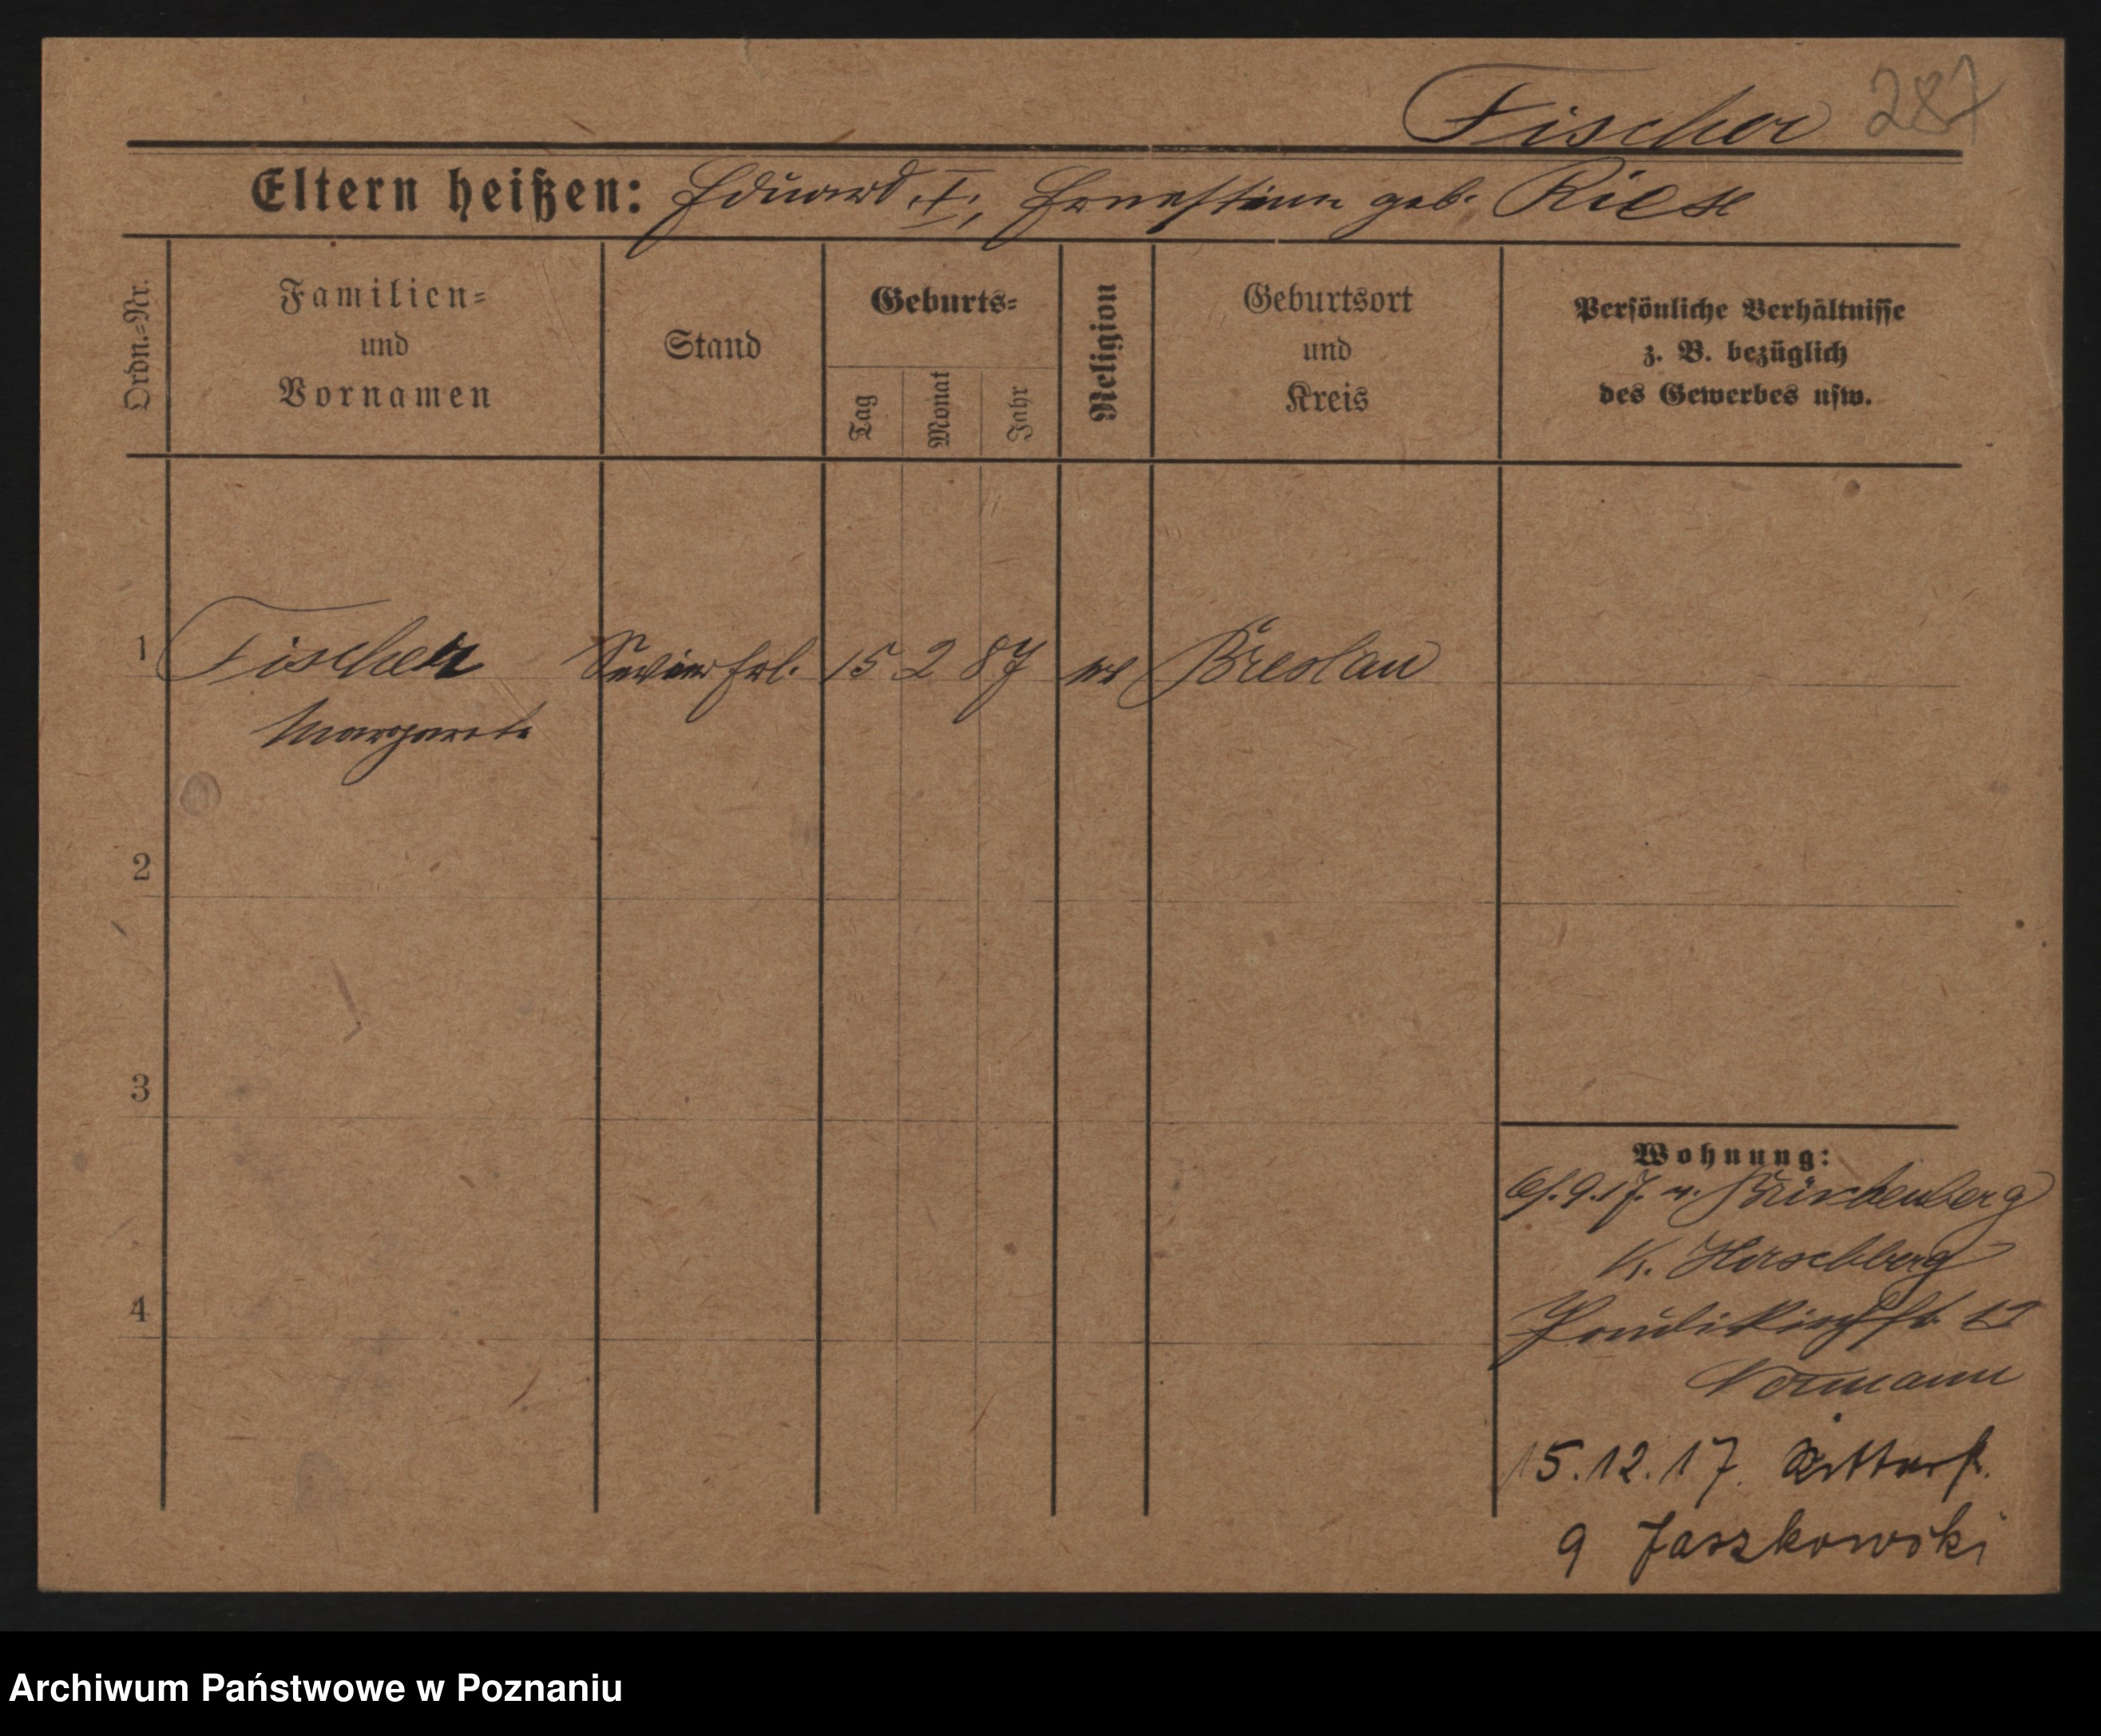 Fischer 287
Eltern heißen: Eduard I, Ernestine geb. Riese
Ordn.=Nr.
Familien=
und
Vornamen
Stand
Geburts=
Tag
Monat
Jahr
Religion
Geburtsort
und
Kreis
Persönliche Verhältnisse
z. B. bezüglich
des Gewerbes usw.
1 Fischer Servierfrl. 15 2 87 ev Breslau
Margarete
2
3
4
Wohnung:
9.17. v.
K. Hirschberg
12
Normann
15.12.17. Ritterst.
9 Jaszkowski
Archiwum Państwowe w Poznaniu